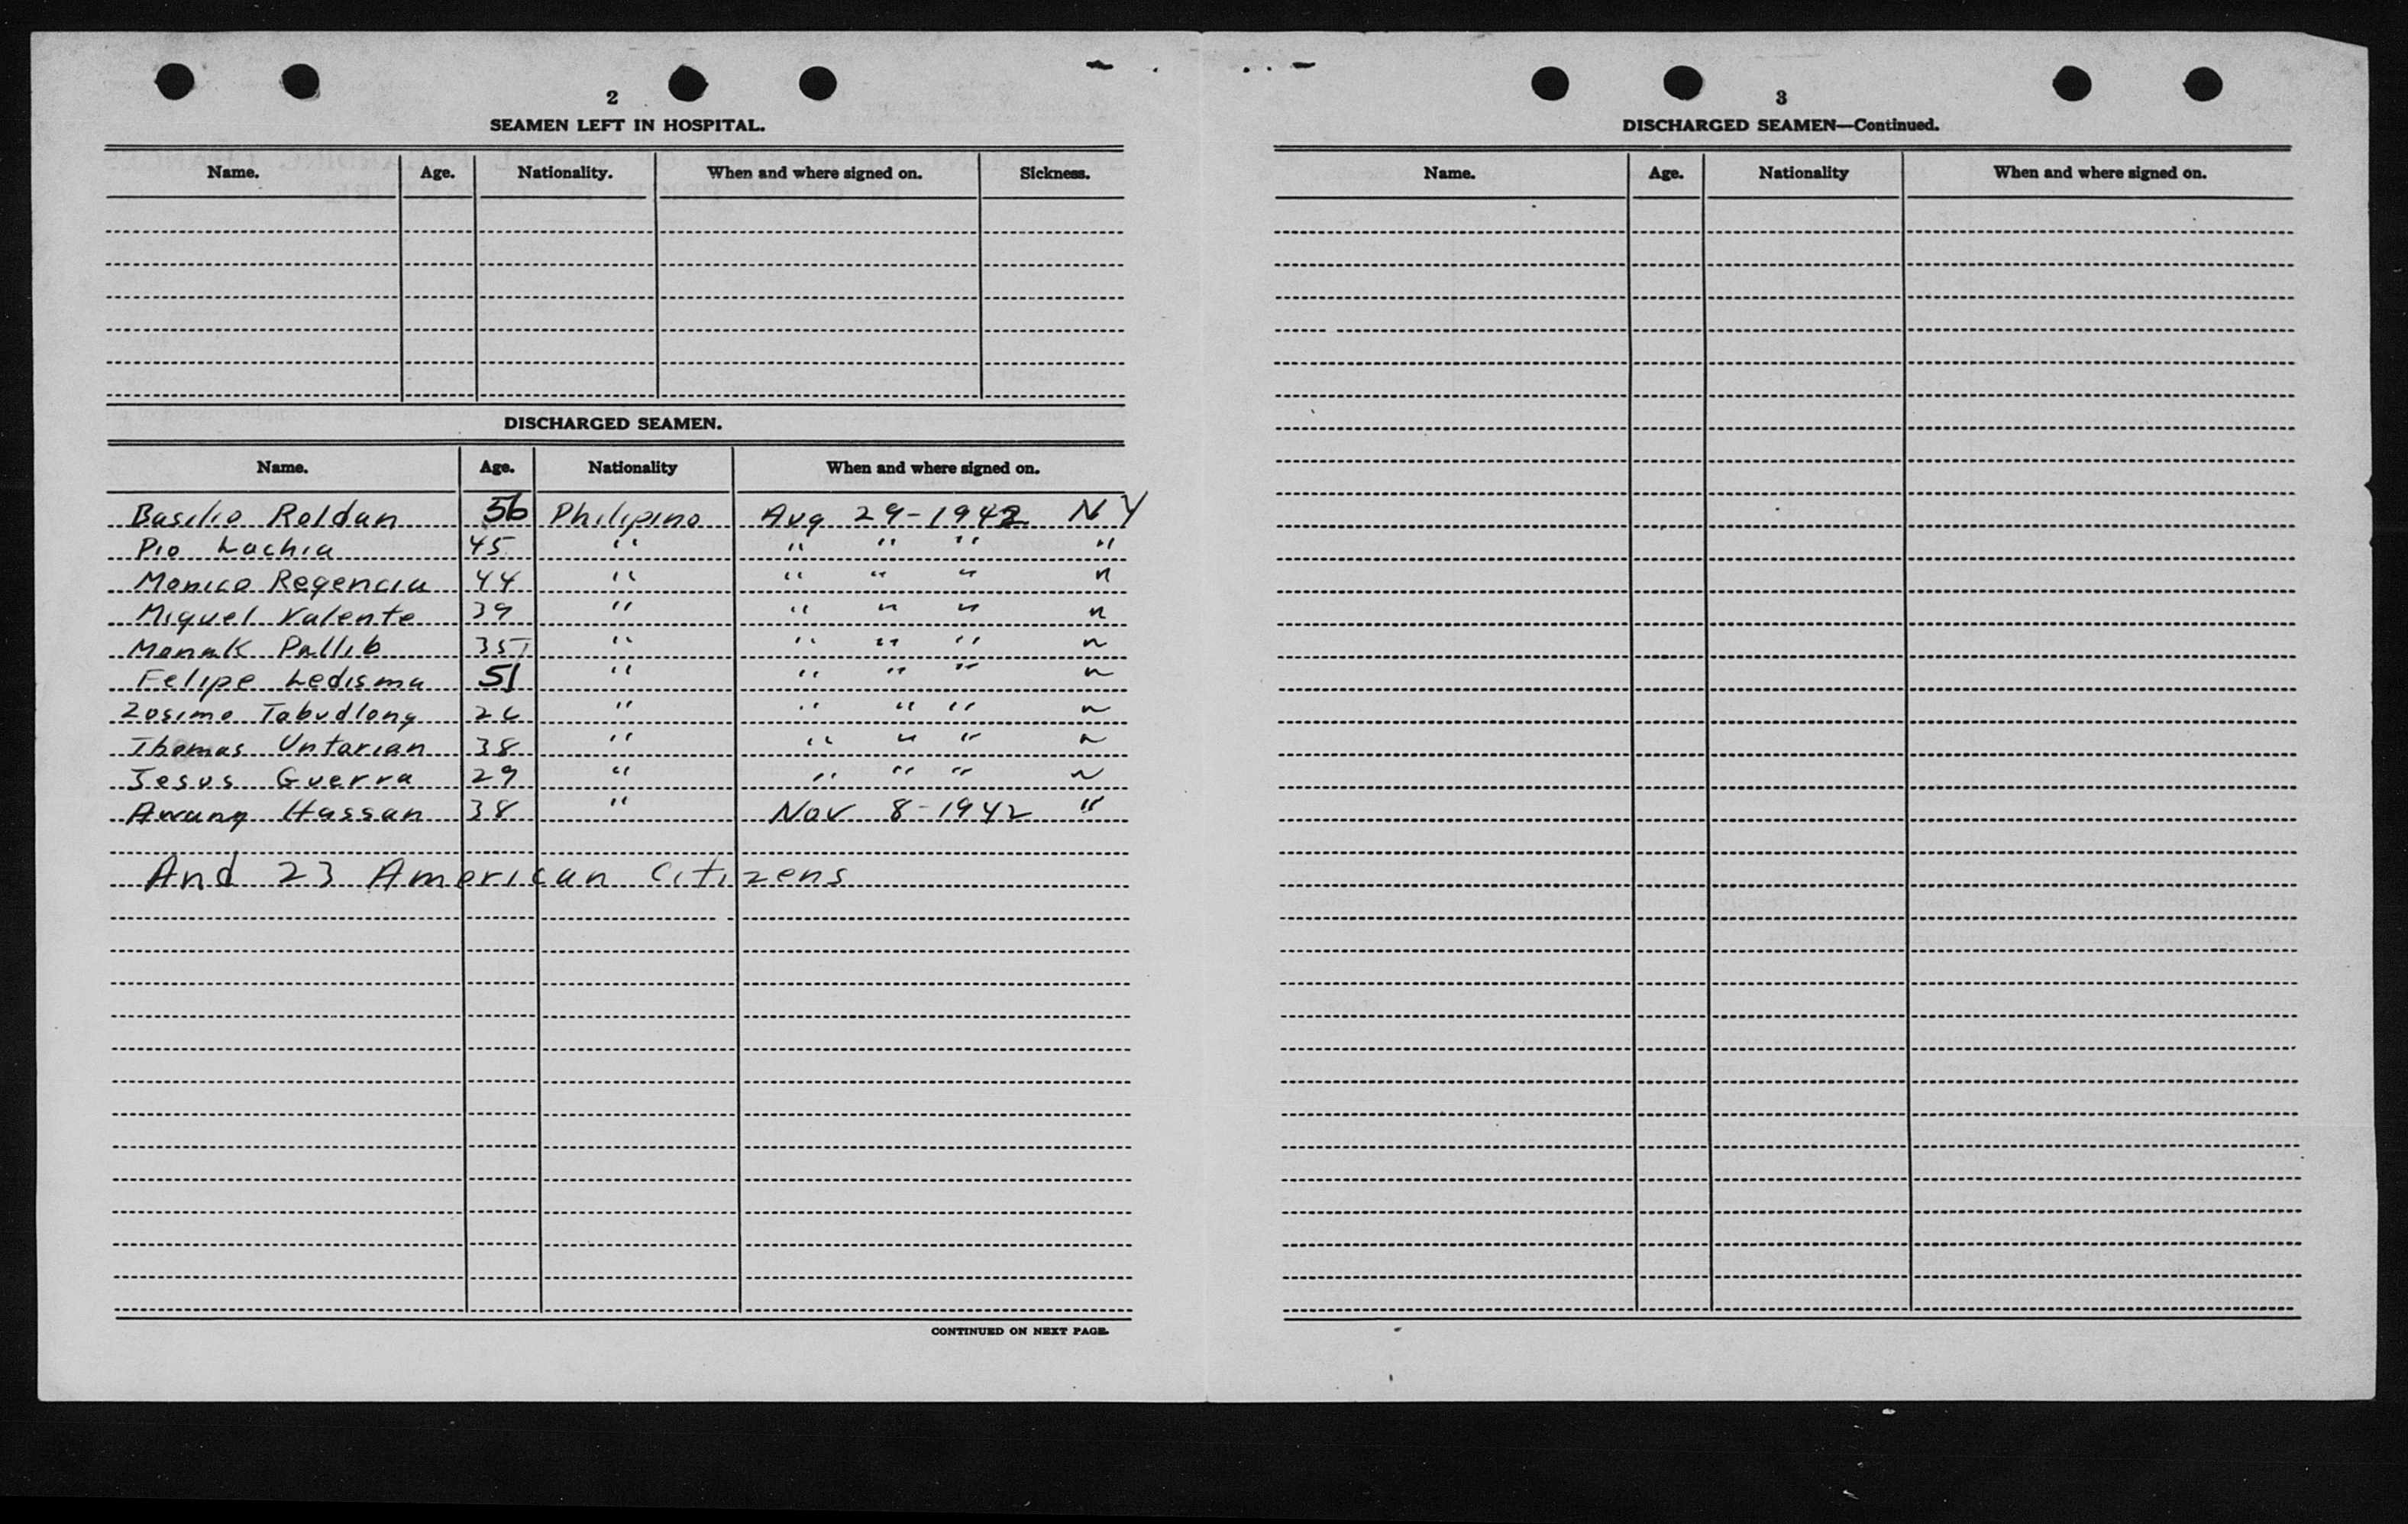 2
SEAMEN LEFT IN HOSPITAL.
Name. Age. Nationality. When and where signed on. Sickness.
DISCHARGED SEAMEN.
Name. Age. Nationality When and where signed on.
Basilio Roldan 56 Philipino Aug 29-1942 NY
Pio Lachia 45 " " " " "
Monico Regencia 44 " " " " "
Miguel Valente 39 " " " " "
Monak Pallib 35 " " " " "
Felipe Ledisma 51 " " " " "
Zosimo Tabudlong 26 " " " " "
Thomas Untarian 38 " " " " "
Jesus Guerra 29 " " " " "
Awang Hassan 38 " Nov 8-1942 "
And 23 American Citizens
CONTINUED ON NEXT PAGE.
3
DISCHARGED SEAMEN—Continued.
Name. Age. Nationality When and where signed on.